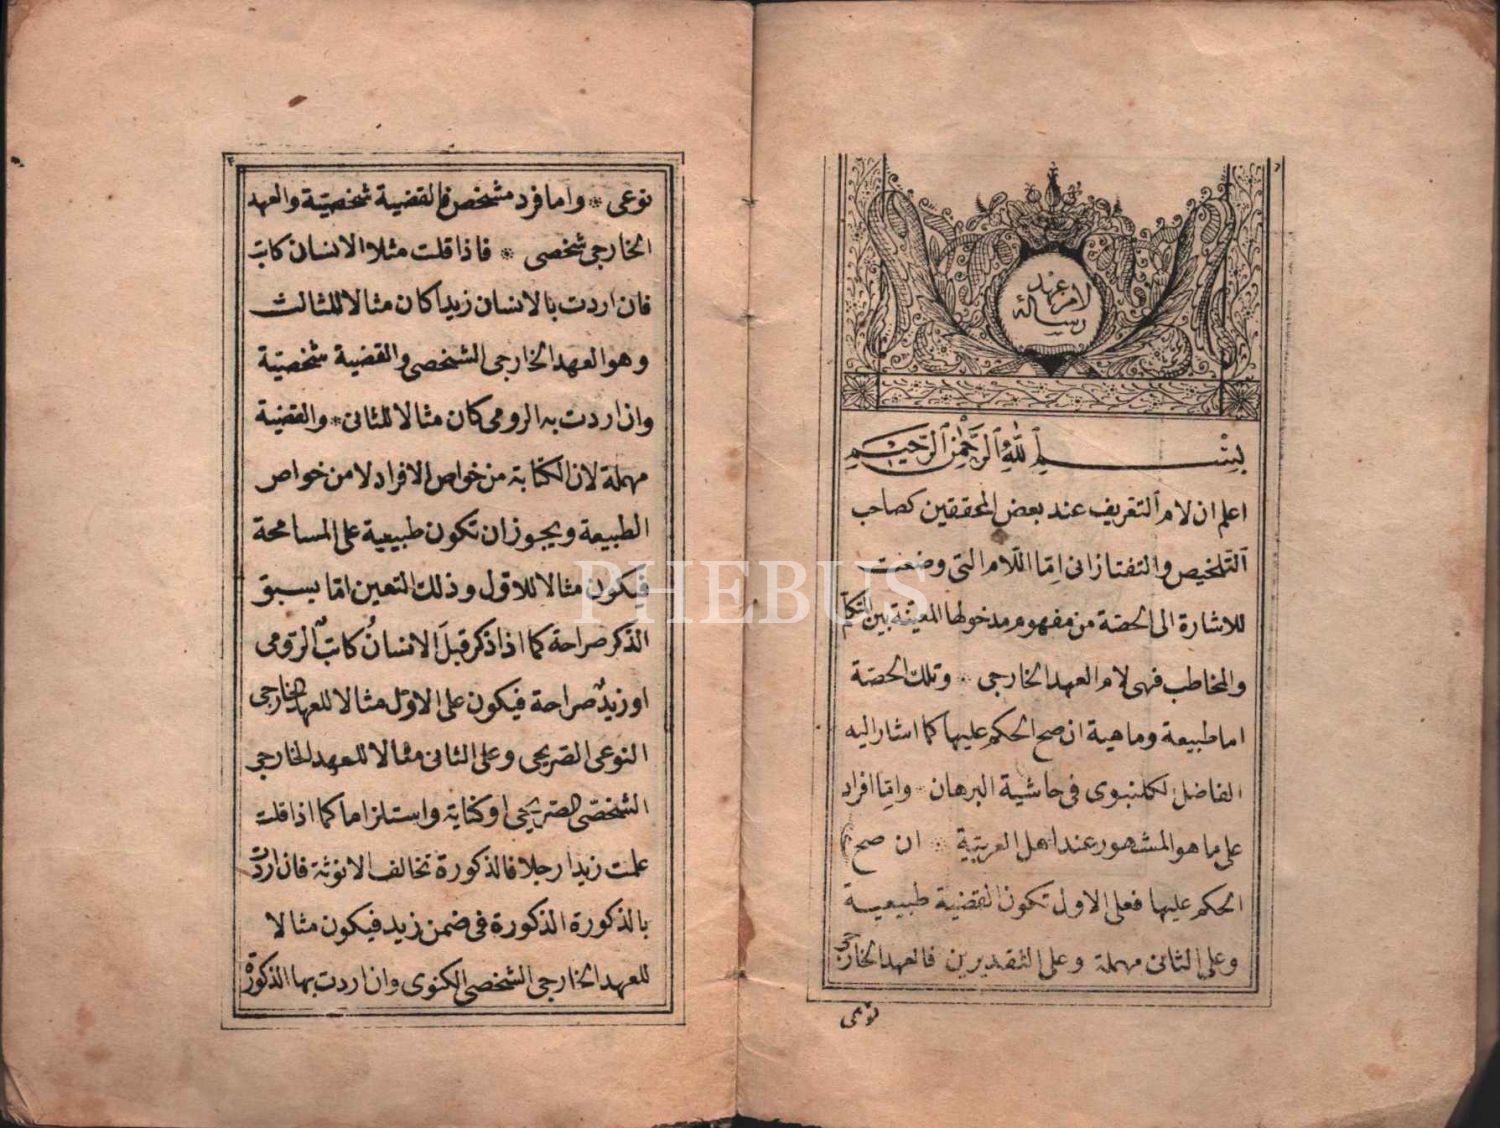 لام عهد
رسالۀ
بسم الله الرحمن الرحيم
اعلم ان لام التعريف عند بعض المحققين كصاحب
التلخيص والتفتازانى امّا اللّام التى وضعت
للاشارة الى الحصّة من مفهوم مدخولها المعيّنة بين المتكلّم
والمخاطب فهى لام العهد الخارجى * وتلك الحصّة
اما طبيعة وماهية ان صح الحكم عليها كما اشار اليه
الفاضل الكلنبوى فى حاشية البرهان * وامّا افراد
على ما هو المشهور عند اهل العربيّة * ان صح
الحكم عليها فعلى الاول تكون القضية طبيعية
وعلى الثانى مهملة وعلى التقديرين فالعهد الخارجى
نوعى
٣
نوعى * واما فرد مشخص فالقضية شخصيّة والعهد
الخارجى شخصى * فاذا قلت مثلا الانسان كاتب
فان اردت بالانسان زيدا كان مثالا للثالث
وهو العهد الخارجى الشخصى والقضية شخصيّة
وان اردت به الرومى كان مثالا للثانى * والقضية
مهملة لان الكتابة من خواص الافراد لا من خواص
الطبيعة ويجوز ان تكون طبيعية على المسامحة
فيكون مثالا للاوّل وذلك التعين امّا بسبق
الذكر صراحة كما اذا ذكر قبل الانسانُ كاتبٌ الرّومى
او زيدٌ صراحة فيكون على الاوّل مثالا للعهد الخارجى
النوعى الصريحى وعلى الثانى مثالا للعهد الخارجى
الشخصى الصريحى او كناية واستلزاما كما اذا قلت
علمت زيدا رجلا فالذكورة تخالف الانوثة فان اردت
بالذكورة الذكورة فى ضمن زيد فيكون مثالا
للعهد الخارجى الشخصى الكنوى وان اردت بها الذكورة
PHEBUS